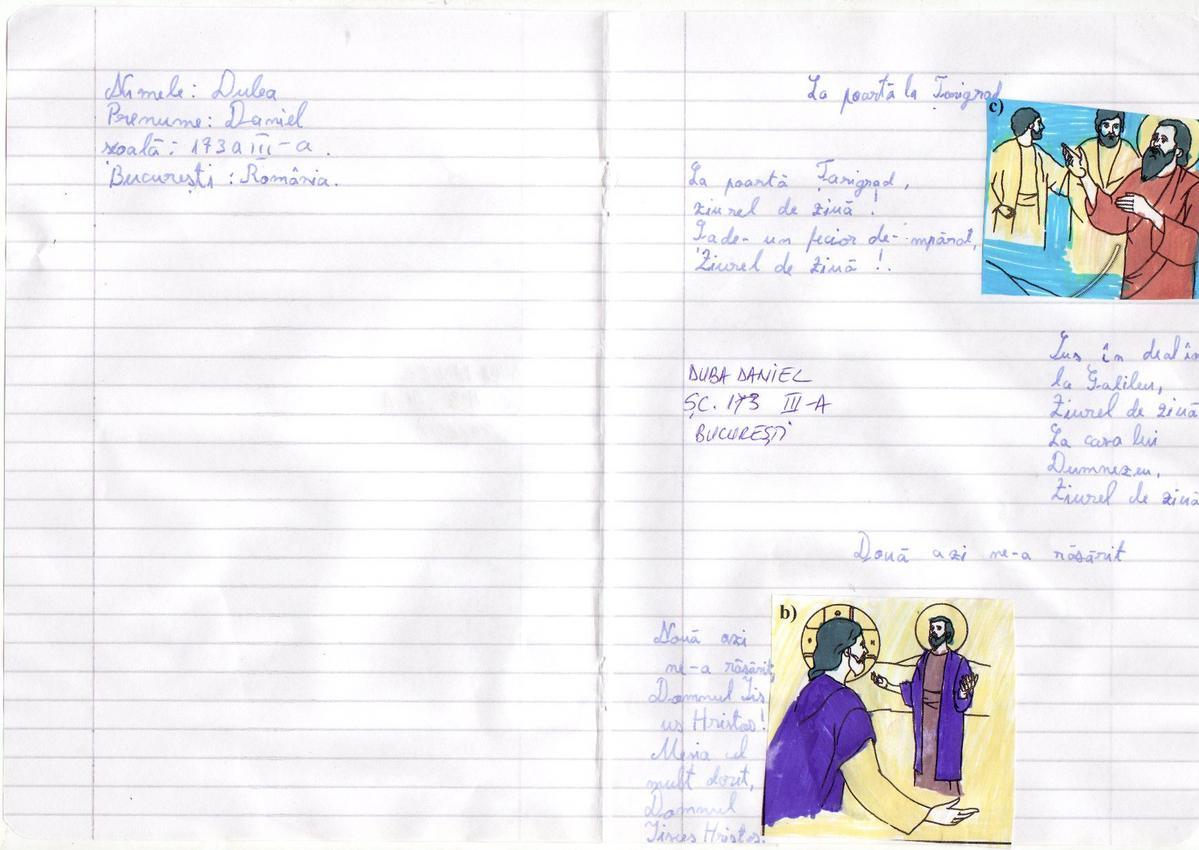 Numele: Dulea
Prenume: Daniel
școală: 173 a III-a.
București: România.
La poartă la Țarigrad
c)
La poartă Țarigrad,
ziurel de ziuă!
Șade-un fecior de-mpărat,
Ziurel de ziuă!.
Sus în deal în
la Galileu,
Ziurel de ziuă
La casa lui
Dumnezeu,
Ziurel de ziuă
DUBA DANIEL
ȘC. 173 III-A
BUCUREȘTI
Două azi ne-a răsărit
b)
Nouă azi
ne-a răsărit,
Domnul Iis
us Hristos!
Mesia cel
mult dorit,
Domnul
Iisus Hristos.